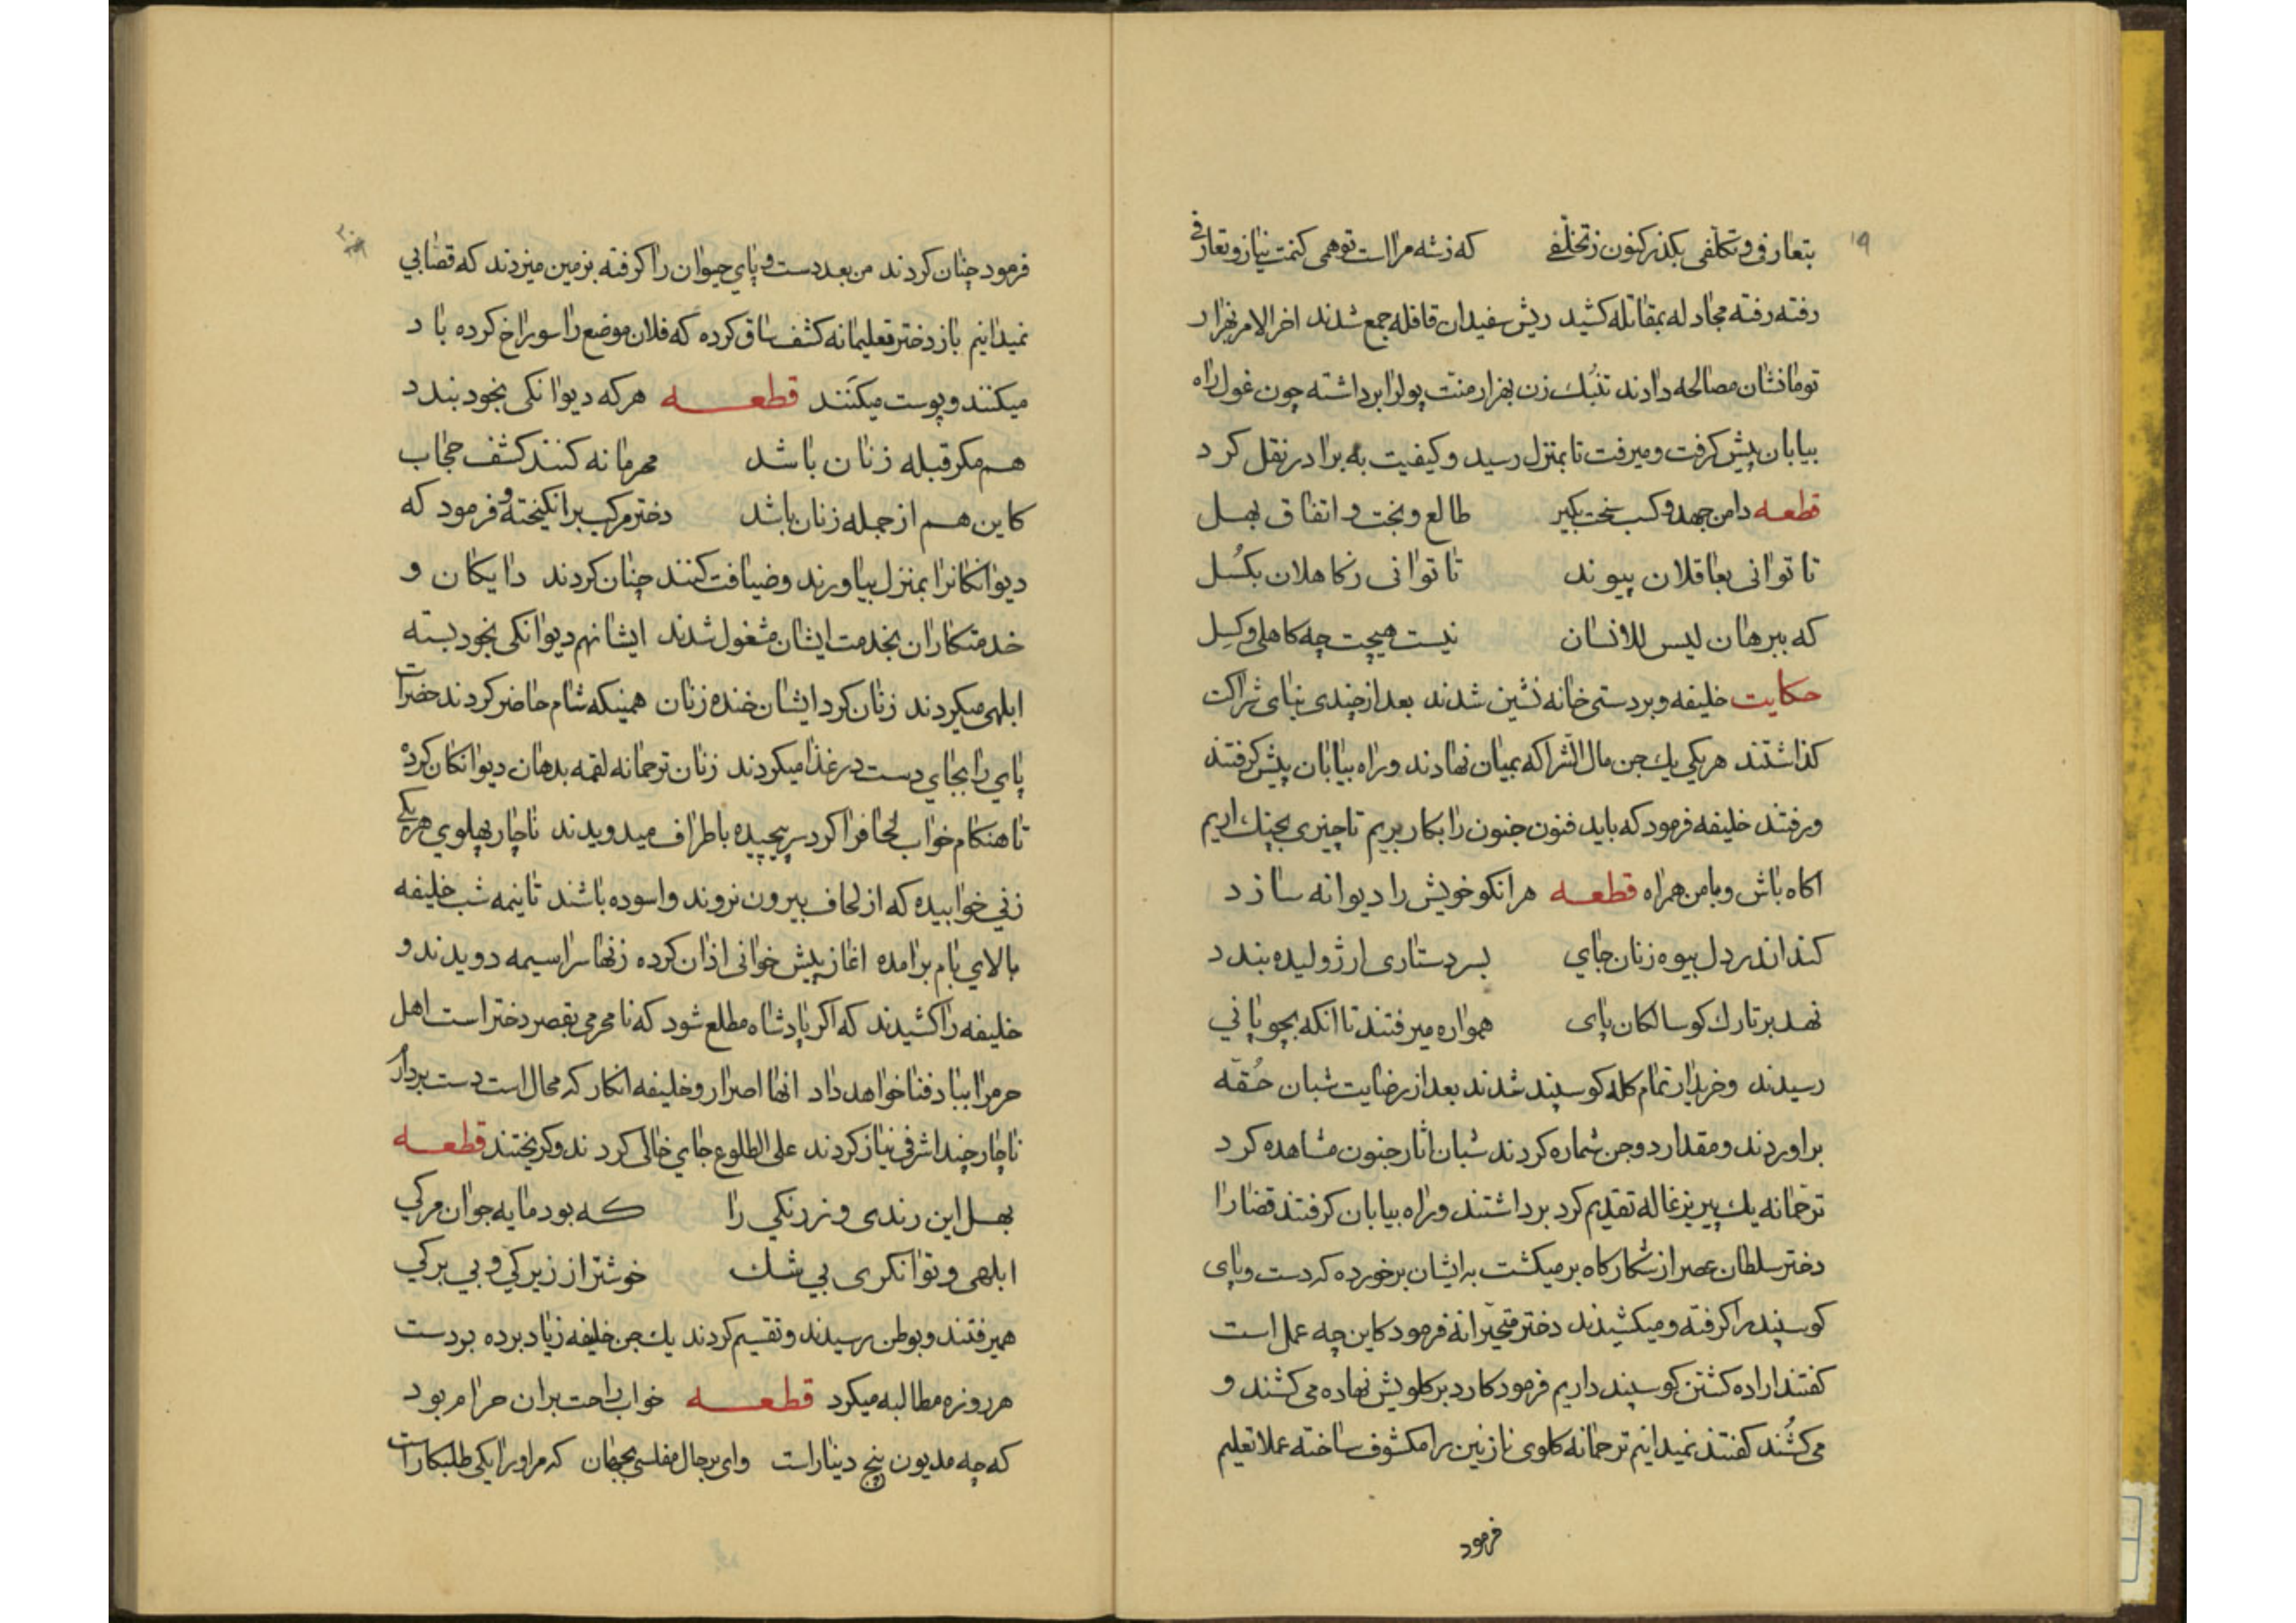 ۱۹
بتعارفی و تکلّفی بکذر کنون ز تخلّفی که ز شه مراست توهمی کنمت نیاز و تعارفی
رفته رفته مجادله بمقاتله کشید ریش سفیدان قافله جمع شدند اخر الامر بهزار
تومانشان مصالحه دادند تنبک زن بهزار منت پولرا برداشته چون غول راه
بیابان پیش کرفت و میرفت تا بمنزل رسید و کیفیت به برادر نقل کرد
قطعه دامن جهد و کسب سخت بکیر طالع و بخت و اتفاق بهل
تا توانی بعاقلان پیوند تا توانی ز کاهلان بکسُل
که ببرهان لیس للانسان نیست هیچت چه کاهلی و کسِل
حکایت خلیفه و بردستی خانه نشین شدند بعد از چندی بنای شراکت
کذاشتند هر یکی یک من مال الشراکه بمیان نهادند و راه بیابان پیش کرفتند
و رفتند خلیفه فرمود که باید فنون جنون را بکار بریم تا چیزی بچنک اریم
اکاه باش و با من همراه قطعه هر انکو خویش را دیوانه سازد
کند اندر دل بیوه زنان جای بسر دستاری ار ژولیده بندد
نهد بر تارک کوسالکان پای همواره میرفتند تا انکه بچوپانی
رسیدند و خریدار تمام کله کوسپند شدند بعد از رضایت شبان حُقّه
براوردند و مقدار دو من شماره کردند شبان اثار جنون مشاهده کرد
ترحّمانه یک پیر بزغاله تقدیم کرد برداشتند و راه بیابان کرفتند قضا را
دختر سلطان عصر از شکارکاه برمیکشت به ایشان برخورده که دست و پای
کوسپند را کرفته و میکشیدند دختر متحیّرانه فرمود کاین چه عمل است
کفتند اراده کشتن کوسپند داریم فرمود کارد بر کلویش نهاده می کشند و
می کشُند کفتند نمیدانیم ترحمانه کلوی نازنین را مکشوف ساخته عملا تعلیم
فرمود
۲۰
فرمود چنان کردند من بعد دست و پای حیوان را کرفته بزمین میزدند که قصّابی
نمیدانیم باز دختر تعلیمانه کشف ساق کرده که فلان موضع را سوراخ کرده باد
میکنند و پوست میکَنند قطعه هر که دیوانکی بخود بندد
هم مکر قبله زنان باشد محرمانه کنند کشف حجاب
کاین هم از جمله زنان باشد دختر مرکب برانکیخته و فرمود که
دیوانکانرا بمنزل بیاورند و ضیافت کنند چنان کردند دایکان و
خدمتکاران بخدمت ایشان مشغول شدند ایشانهم دیوانکی بخود بسته
ابلهی میکردند زنان کرد ایشان خنده زنان همینکه شام حاضر کردند حضرات
پای را بجای دست در غذا میکردند زنان ترحمانه لقمه بدهان دیوانکان کرده
تا هنکام خواب لحافرا کرد سر پیچیده باطراف میدویدند ناچار بپهلوی هر یکی
زنی خوابیده که از لحاف بیرون نروند و اسوده باشند تا نیمه شب خلیفه
بالای بام برامده اغاز پیش خوانی اذان کرده زنها سراسیمه دویدند و
خلیفه را کشیدند که اکر پادشاه مطلع شود که نا محرمی بقصر دختر است اهل
حرم را بباد فنا خواهد داد انها اصرار و خلیفه انکار که محال است دست بردار
ناچار چند اشرفی نیاز کردند علی الطلوع جای خالی کردند و کریختند قطعه
بهل این رندی و زرنکی را که بود مایه جوان مرکی
ابلهی و توانکری بی شک خوشتر از زیرکی و بی برکی
همیرفتند و بوطن رسیدند و تقسیم کردند یک من خلیفه زیاد برده بردست
هر روزه مطالبه میکرد قطعه خواب راحت بران حرام بود
که چه مدیون پنج دینار است وای بر حال مفلسی بجهان که مر او را یکی طلبکار است